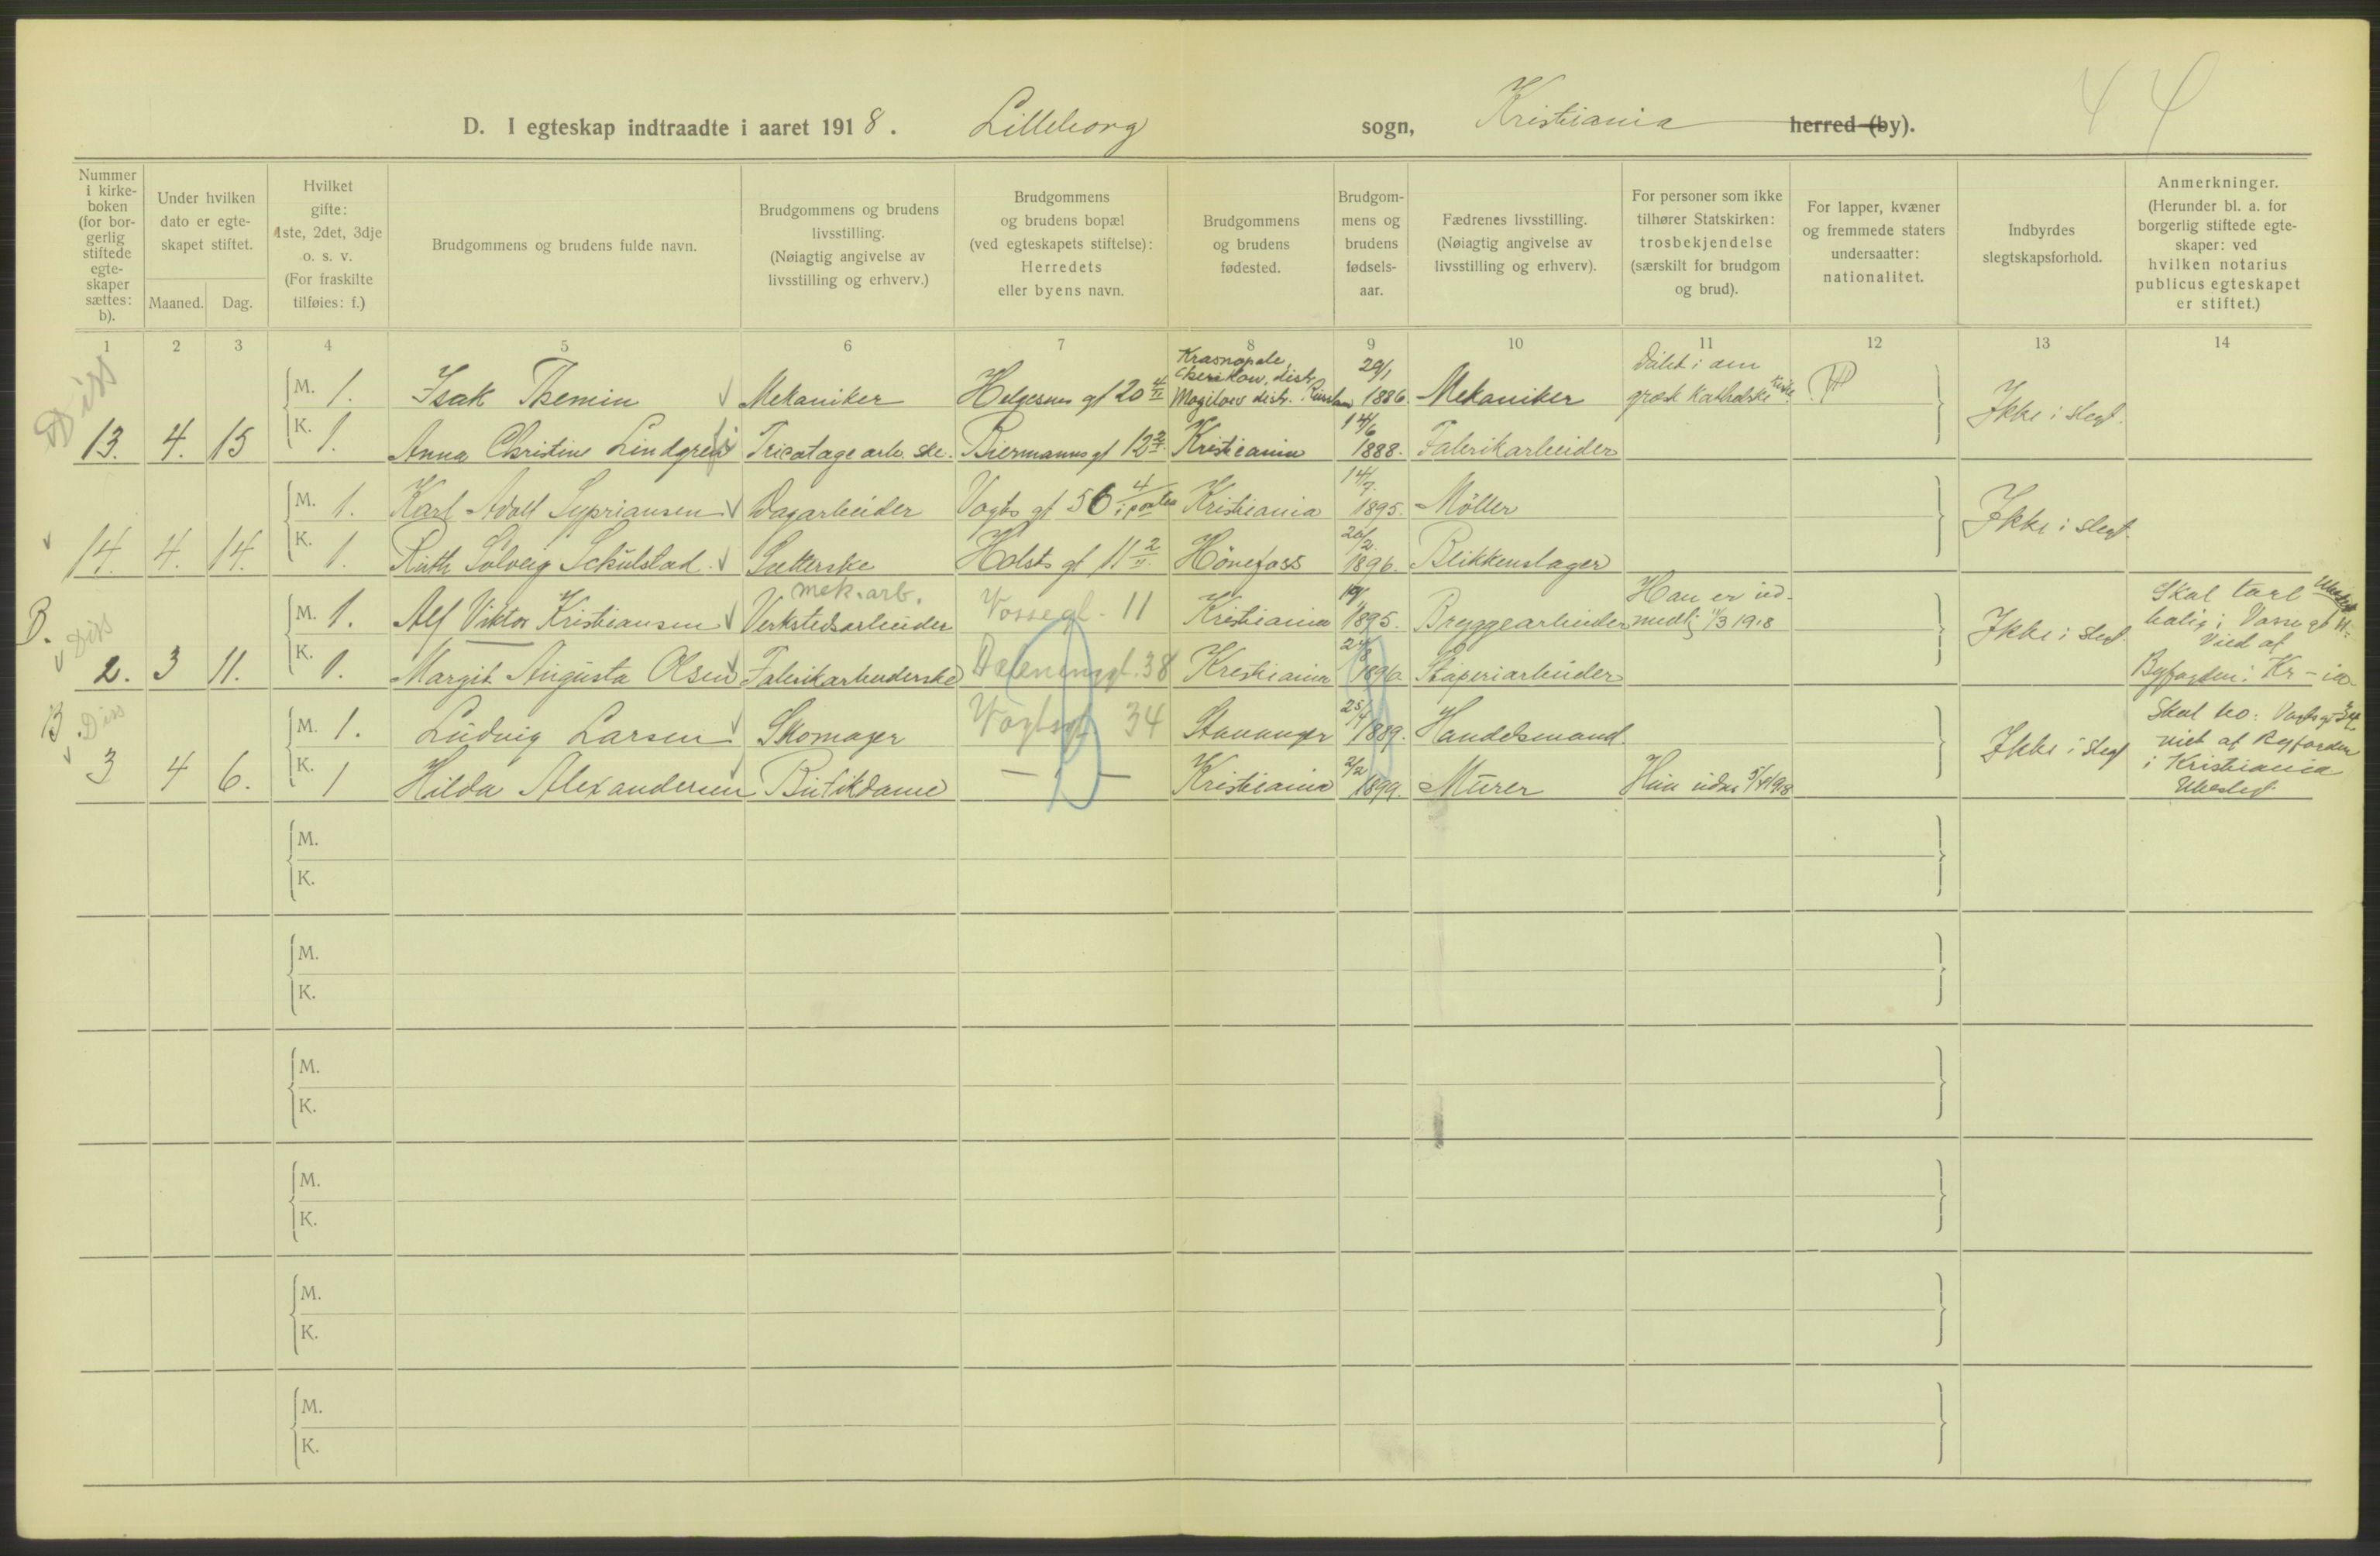 44
D. I egteskap indtraadte i aaret 1918. Lilleborg sogn, Kristiania herred (by).
Nummer i kirke- boken (for bor- gerlig stiftede egte- skaper sættes: b).
Under hvilken dato er egte- skapet stiftet.
Maaned. Dag.
Hvilket gifte: 1ste, 2det, 3dje o. s. v. (For fraskilte tilføies: f.)
Brudgommens og brudens fulde navn.
Brudgommens og brudens livsstilling. (Nøiagtig angivelse av livsstilling og erhverv.)
Brudgommens og brudens bopæl (ved egteskapets stiftelse): Herredets eller byens navn.
Brudgommens og brudens fødested.
Brudgom- mens og brudens fødsels- aar.
Fædrenes livsstilling. (Nøiagtig angivelse av livsstilling og erhverv).
For personer som ikke tilhører Statskirken: trosbekjendelse (særskilt for brudgom og brud).
For lapper, kvæner og fremmede staters undersaatter: nationalitet.
Indbyrdes slegtskapsforhold.
Anmerkninger. (Herunder bl. a. for borgerlig stiftede egte- skaper: ved hvilken notarius publicus egteskapet er stiftet.)
1 2 3 4 5 6 7 8 9 10 11 12 13 14
Diss
M. 1. Isak Themin Mekaniker Helgesens gt 20 4/II Krasnopole, distr. Mogilow distr. Russland 29/1 1886. Mekaniker Døbt i den græsk Katholske Kirke. Ikke i slegt.
13. 4. 15 K. 1. Anna Christine Lindgren Tricotagearb.ske. Biermanns gt 12 Kristiania 14/6 1888. Fabrikarbeider
M. 1. Karl Adolf Sypriansen Dagarbeider Vogts gt 56 4/ i porten Kristiania 14/7. 1895. Møller Ikke i slegt.
14. 4. 14. K. 1. Ruth Solveig Schulstad Sætterske Holsts gt 11 2/II Hönefoss 20/2. 1896. Blikkenslager
B. Diss
mek. arb.
M. 1. Alf Viktor Kristiansen Verkstedsarbeider Vossegt. 11 Kristiania 1895. Bryggearbeider Han er ud- meldt 11/3 1918 Ikke i slegt Skal bolig i Vossegt 11. Vied af Byfogden i Kr-ia
2. 3 11. K. 1. Margit Augusta Olsen Fabrikarbeiderske Dælenenggt. 38 Kristiania 24/8 1896 Støperiarbeider
B. Diss
M. 1. Ludvig Larsen Skomager Vogtsgt 34 Stavanger 25/4 1889. Handelsmand. Ikke i slegt Skal bo: Vogtsgt 34 viet af Byfogden i Kristiania Ubeslegt
3 4 6. K. 1 Hilda Alexandersen Butikdame — " — Kristiania 2/2 1899. Murer Hun udm. 5/4 1918
M.
K.
M.
K.
M.
K.
M.
K.
M.
K.
M.
K.